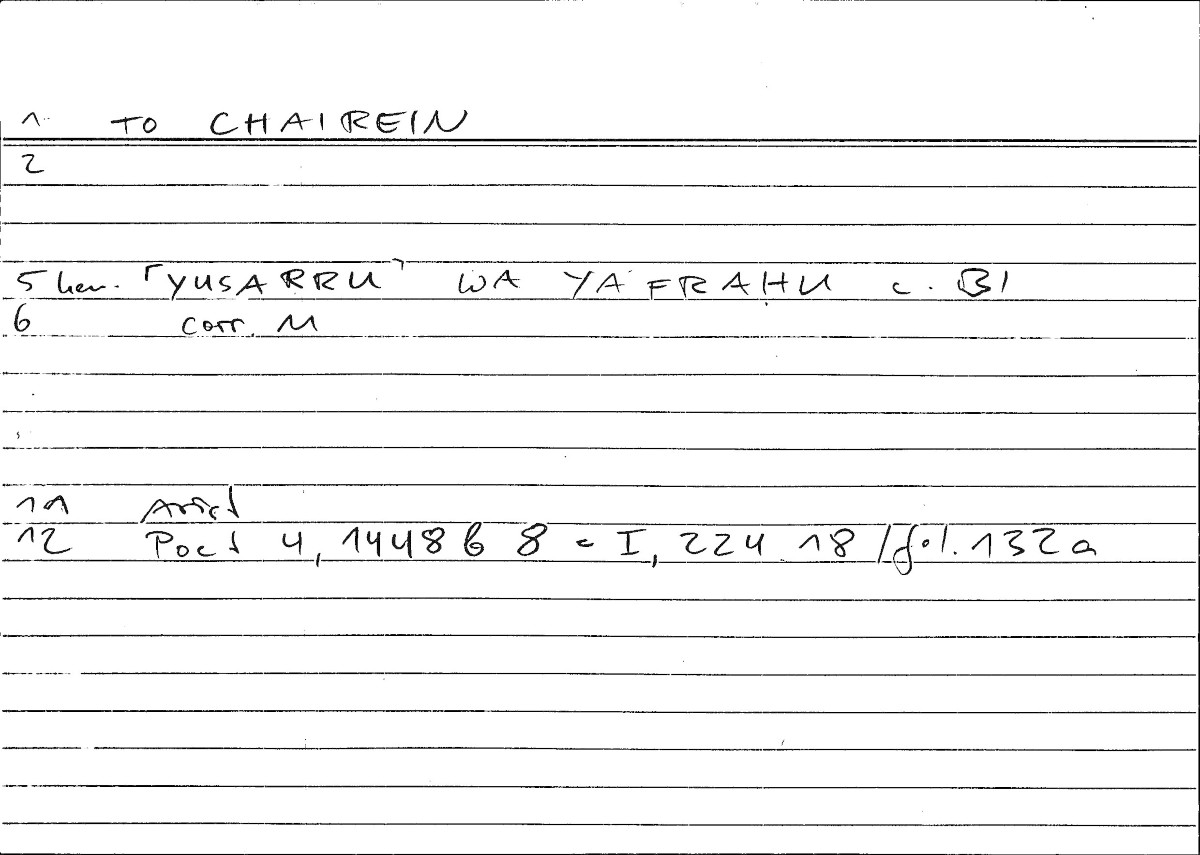 1 TO CHAIREIN
2
5 hen. ⌜YUSARRU⌝ WA YAFRAḤU c. BI
6 corr. M
11 Arist
12 Poet 4, 1448 b 8 = I, 224 18 / fol. 132a